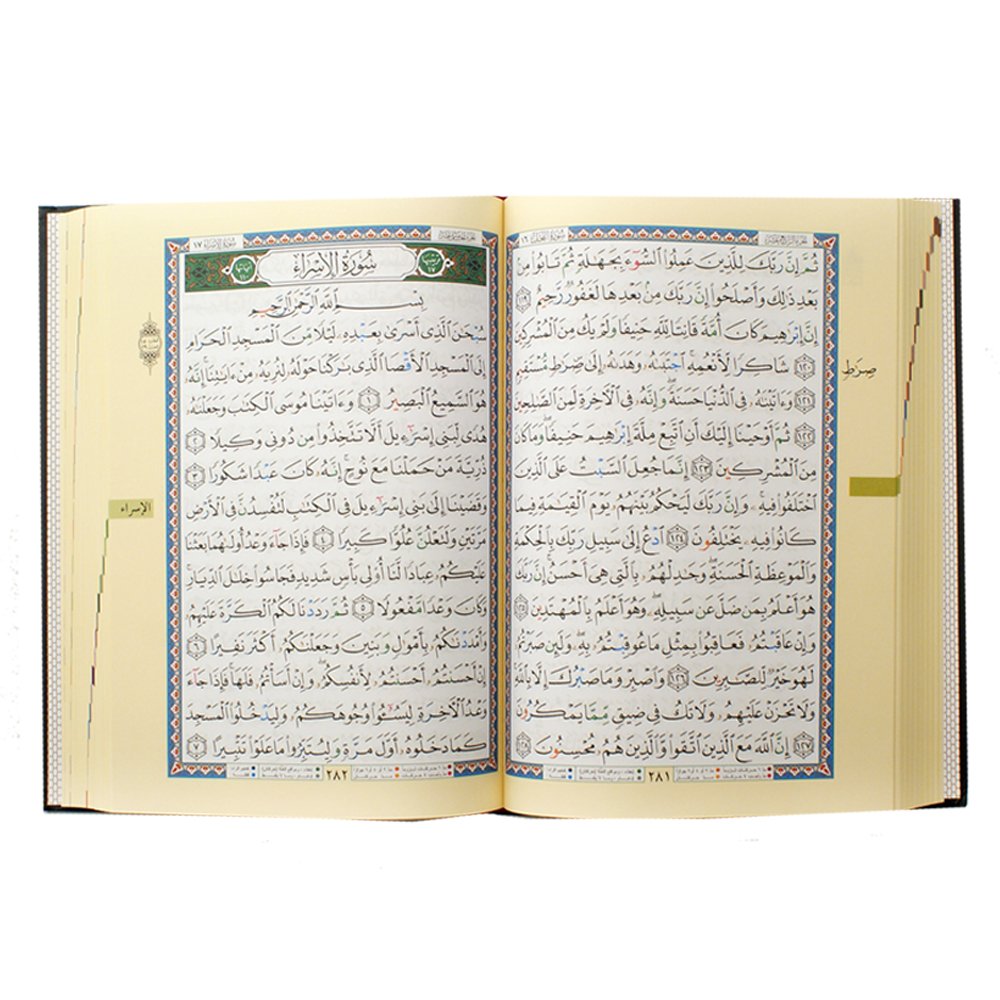 ثُمَّ إِنَّ رَبَّكَ لِلَّذِينَ عَمِلُوا۟ ٱلسُّوٓءَ بِجَهَٰلَةٍ ثُمَّ تَابُوا۟ مِنۢ
بَعْدِ ذَٰلِكَ وَأَصْلَحُوٓا۟ إِنَّ رَبَّكَ مِنۢ بَعْدِهَا لَغَفُورٌ رَّحِيمٌ ١١٩
إِنَّ إِبْرَٰهِيمَ كَانَ أُمَّةً قَانِتًا لِّلَّهِ حَنِيفًا وَلَمْ يَكُ مِنَ ٱلْمُشْرِكِينَ
١٢٠ شَاكِرًا لِّأَنْعُمِهِ ۚ ٱجْتَبَىٰهُ وَهَدَىٰهُ إِلَىٰ صِرَٰطٍ مُّسْتَقِيمٍ
١٢١ وَءَاتَيْنَٰهُ فِى ٱلدُّنْيَا حَسَنَةً ۖ وَإِنَّهُۥ فِى ٱلْءَاخِرَةِ لَمِنَ ٱلصَّٰلِحِينَ
١٢٢ ثُمَّ أَوْحَيْنَآ إِلَيْكَ أَنِ ٱتَّبِعْ مِلَّةَ إِبْرَٰهِيمَ حَنِيفًا ۖ وَمَا كَانَ
مِنَ ٱلْمُشْرِكِينَ ١٢٣ إِنَّمَا جُعِلَ ٱلسَّبْتُ عَلَى ٱلَّذِينَ
ٱخْتَلَفُوا۟ فِيهِ ۚ وَإِنَّ رَبَّكَ لَيَحْكُمُ بَيْنَهُمْ يَوْمَ ٱلْقِيَٰمَةِ فِيمَا
كَانُوا۟ فِيهِ يَخْتَلِفُونَ ١٢٤ ٱدْعُ إِلَىٰ سَبِيلِ رَبِّكَ بِٱلْحِكْمَةِ
وَٱلْمَوْعِظَةِ ٱلْحَسَنَةِ ۖ وَجَٰدِلْهُم بِٱلَّتِى هِىَ أَحْسَنُ ۚ إِنَّ رَبَّكَ
هُوَ أَعْلَمُ بِمَن ضَلَّ عَن سَبِيلِهِۦ ۖ وَهُوَ أَعْلَمُ بِٱلْمُهْتَدِينَ ١٢٥
وَإِنْ عَاقَبْتُمْ فَعَاقِبُوا۟ بِمِثْلِ مَا عُوقِبْتُم بِهِۦ ۖ وَلَئِن صَبَرْتُمْ
لَهُوَ خَيْرٌ لِّلصَّٰبِرِينَ ١٢٦ وَٱصْبِرْ وَمَا صَبْرُكَ إِلَّا بِٱللَّهِ ۚ
وَلَا تَحْزَنْ عَلَيْهِمْ وَلَا تَكُ فِى ضَيْقٍ مِّمَّا يَمْكُرُونَ
١٢٧ إِنَّ ٱللَّهَ مَعَ ٱلَّذِينَ ٱتَّقَوا۟ وَّٱلَّذِينَ هُم مُّحْسِنُونَ ١٢٨
٢٨١
صِرَٰطٍ
سُورَةُ الإِسْرَاءِ ١٧
سُورَةُ الإِسْرَاءِ
بِسْمِ ٱللَّهِ ٱلرَّحْمَٰنِ ٱلرَّحِيمِ
سُبْحَٰنَ ٱلَّذِىٓ أَسْرَىٰ بِعَبْدِهِۦ لَيْلًا مِّنَ ٱلْمَسْجِدِ ٱلْحَرَامِ
إِلَى ٱلْمَسْجِدِ ٱلْأَقْصَا ٱلَّذِى بَٰرَكْنَا حَوْلَهُۥ لِنُرِيَهُۥ مِنْ ءَايَٰتِنَآ ۚ إِنَّهُۥ
هُوَ ٱلسَّمِيعُ ٱلْبَصِيرُ ١ وَءَاتَيْنَا مُوسَى ٱلْكِتَٰبَ وَجَعَلْنَٰهُ
هُدًى لِّبَنِىٓ إِسْرَٰٓءِيلَ أَلَّا تَتَّخِذُوا۟ مِن دُونِى وَكِيلًا ٢
ذُرِّيَّةَ مَنْ حَمَلْنَا مَعَ نُوحٍ ۚ إِنَّهُۥ كَانَ عَبْدًا شَكُورًا ٣
وَقَضَيْنَآ إِلَىٰ بَنِىٓ إِسْرَٰٓءِيلَ فِى ٱلْكِتَٰبِ لَتُفْسِدُنَّ فِى ٱلْأَرْضِ
مَرَّتَيْنِ وَلَتَعْلُنَّ عُلُوًّا كَبِيرًا ٤ فَإِذَا جَآءَ وَعْدُ أُولَىٰهُمَا بَعَثْنَا
عَلَيْكُمْ عِبَادًا لَّنَآ أُو۟لِى بَأْسٍ شَدِيدٍ فَجَاسُوا۟ خِلَٰلَ ٱلدِّيَارِ ۚ
وَكَانَ وَعْدًا مَّفْعُولًا ٥ ثُمَّ رَدَدْنَا لَكُمُ ٱلْكَرَّةَ عَلَيْهِمْ
وَأَمْدَدْنَٰكُم بِأَمْوَٰلٍ وَبَنِينَ وَجَعَلْنَٰكُمْ أَكْثَرَ نَفِيرًا ٦
إِنْ أَحْسَنتُمْ أَحْسَنتُمْ لِأَنفُسِكُمْ ۖ وَإِنْ أَسَأْتُمْ فَلَهَا ۚ فَإِذَا جَآءَ
وَعْدُ ٱلْءَاخِرَةِ لِيَسُۥٓـُٔوا۟ وُجُوهَكُمْ وَلِيَدْخُلُوا۟ ٱلْمَسْجِدَ
كَمَا دَخَلُوهُ أَوَّلَ مَرَّةٍ وَلِيُتَبِّرُوا۟ مَا عَلَوْا۟ تَتْبِيرًا ٧
٢٨٢
الإسراء